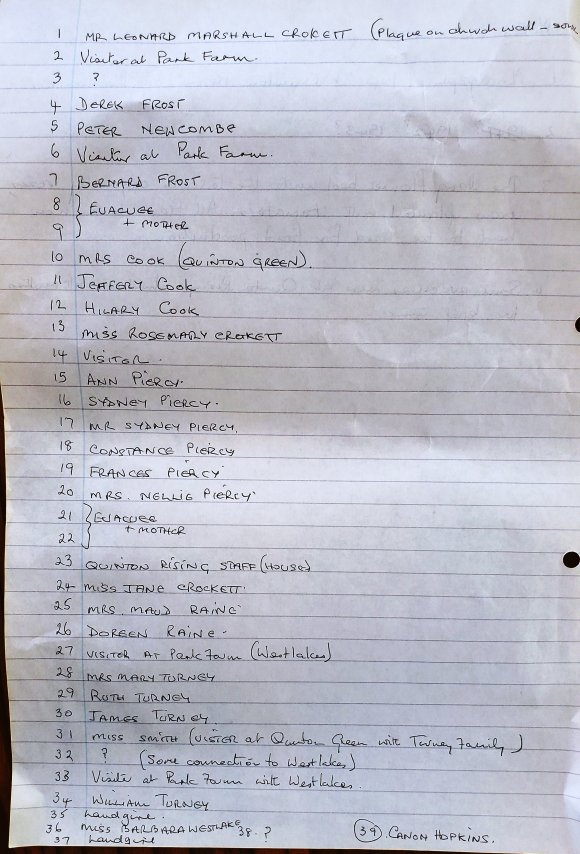 1 MR LEONARD MARSHALL CROKETT (Plaque on church wall -
2 Visitor at Park Farm.
3 ?
4 DEREK FROST
5 PETER NEWCOMBE
6 Visitor at Park Farm.
7 BERNARD FROST
8 } EVACUEE
9 + MOTHER
10 MRS COOK (QUINTON GREEN).
11 JEFFERY COOK
12 HILARY COOK
13 MISS ROSEMARY CROKETT
14 VISITOR.
15 ANN PIERCY.
16 SYDNEY PIERCY.
17 MR SYDNEY PIERCY.
18 CONSTANCE PIERCY
19 FRANCES PIERCY
20 MRS. NELLIE PIERCY
21 } EVACUEE
22 + MOTHER
23 QUINTON RISING STAFF (HOUSE)
24 MISS JANE CROCKETT.
25 MRS. MAUD RAINE
26 DOREEN RAINE.
27 VISITOR AT Park Farm (Westlakes)
28 MRS MARY TURNEY
29 RUTH TURNEY
30 JAMES TURNEY.
31 MISS SMITH (VISITER at Quinton Green with Turney Family)
32 ? (Some connection to Westlakes)
33 Visitor at Park Farm with Westlakes.
34 WILLIAM TURNEY
35 Landgirl.
36 MISS BARBARA WESTLAKE 38. ? (39) CANON HOPKINS.
37 Landgirl